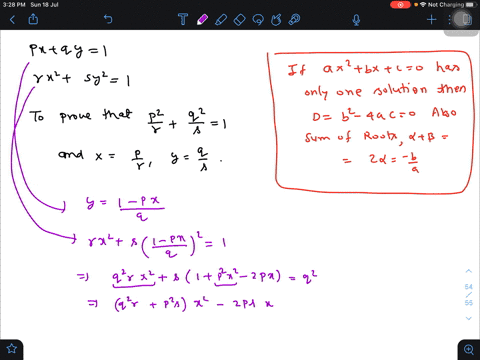 3:28 PM Sun 18 Jul
Not Charging
px + qy = 1
rx² + sy² = 1
To prove that p²/r + q²/s = 1
and x = p/r, y = q/s.
If ax² + bx + c = 0 has
only one solution then
D = b² - 4ac = 0 Also
Sum of Roots, α + β =
= 2α = -b/a
y = (1 - px)/q
rx² + s((1 - px)/q)² = 1
⇒ q²r x² + s(1 + p²x² - 2px) = q²
⇒ (q²r + p²s) x² - 2ps x
54
55